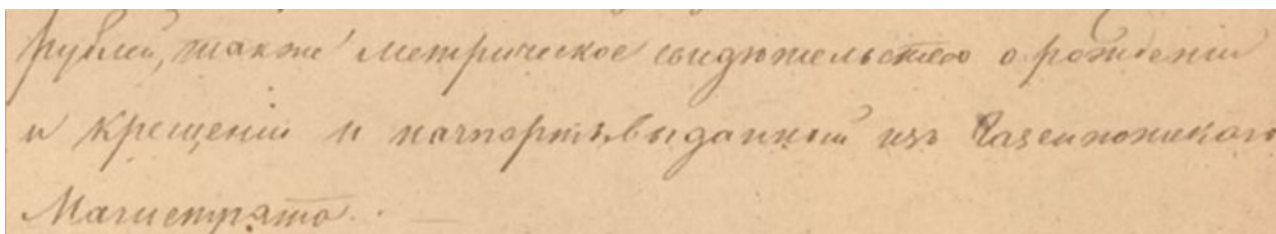 рублей, также метрическое свидѣтельство о рожденіи
и крещеніи и паспортъ, выданный изъ Газенпотскаго
Магистрата.